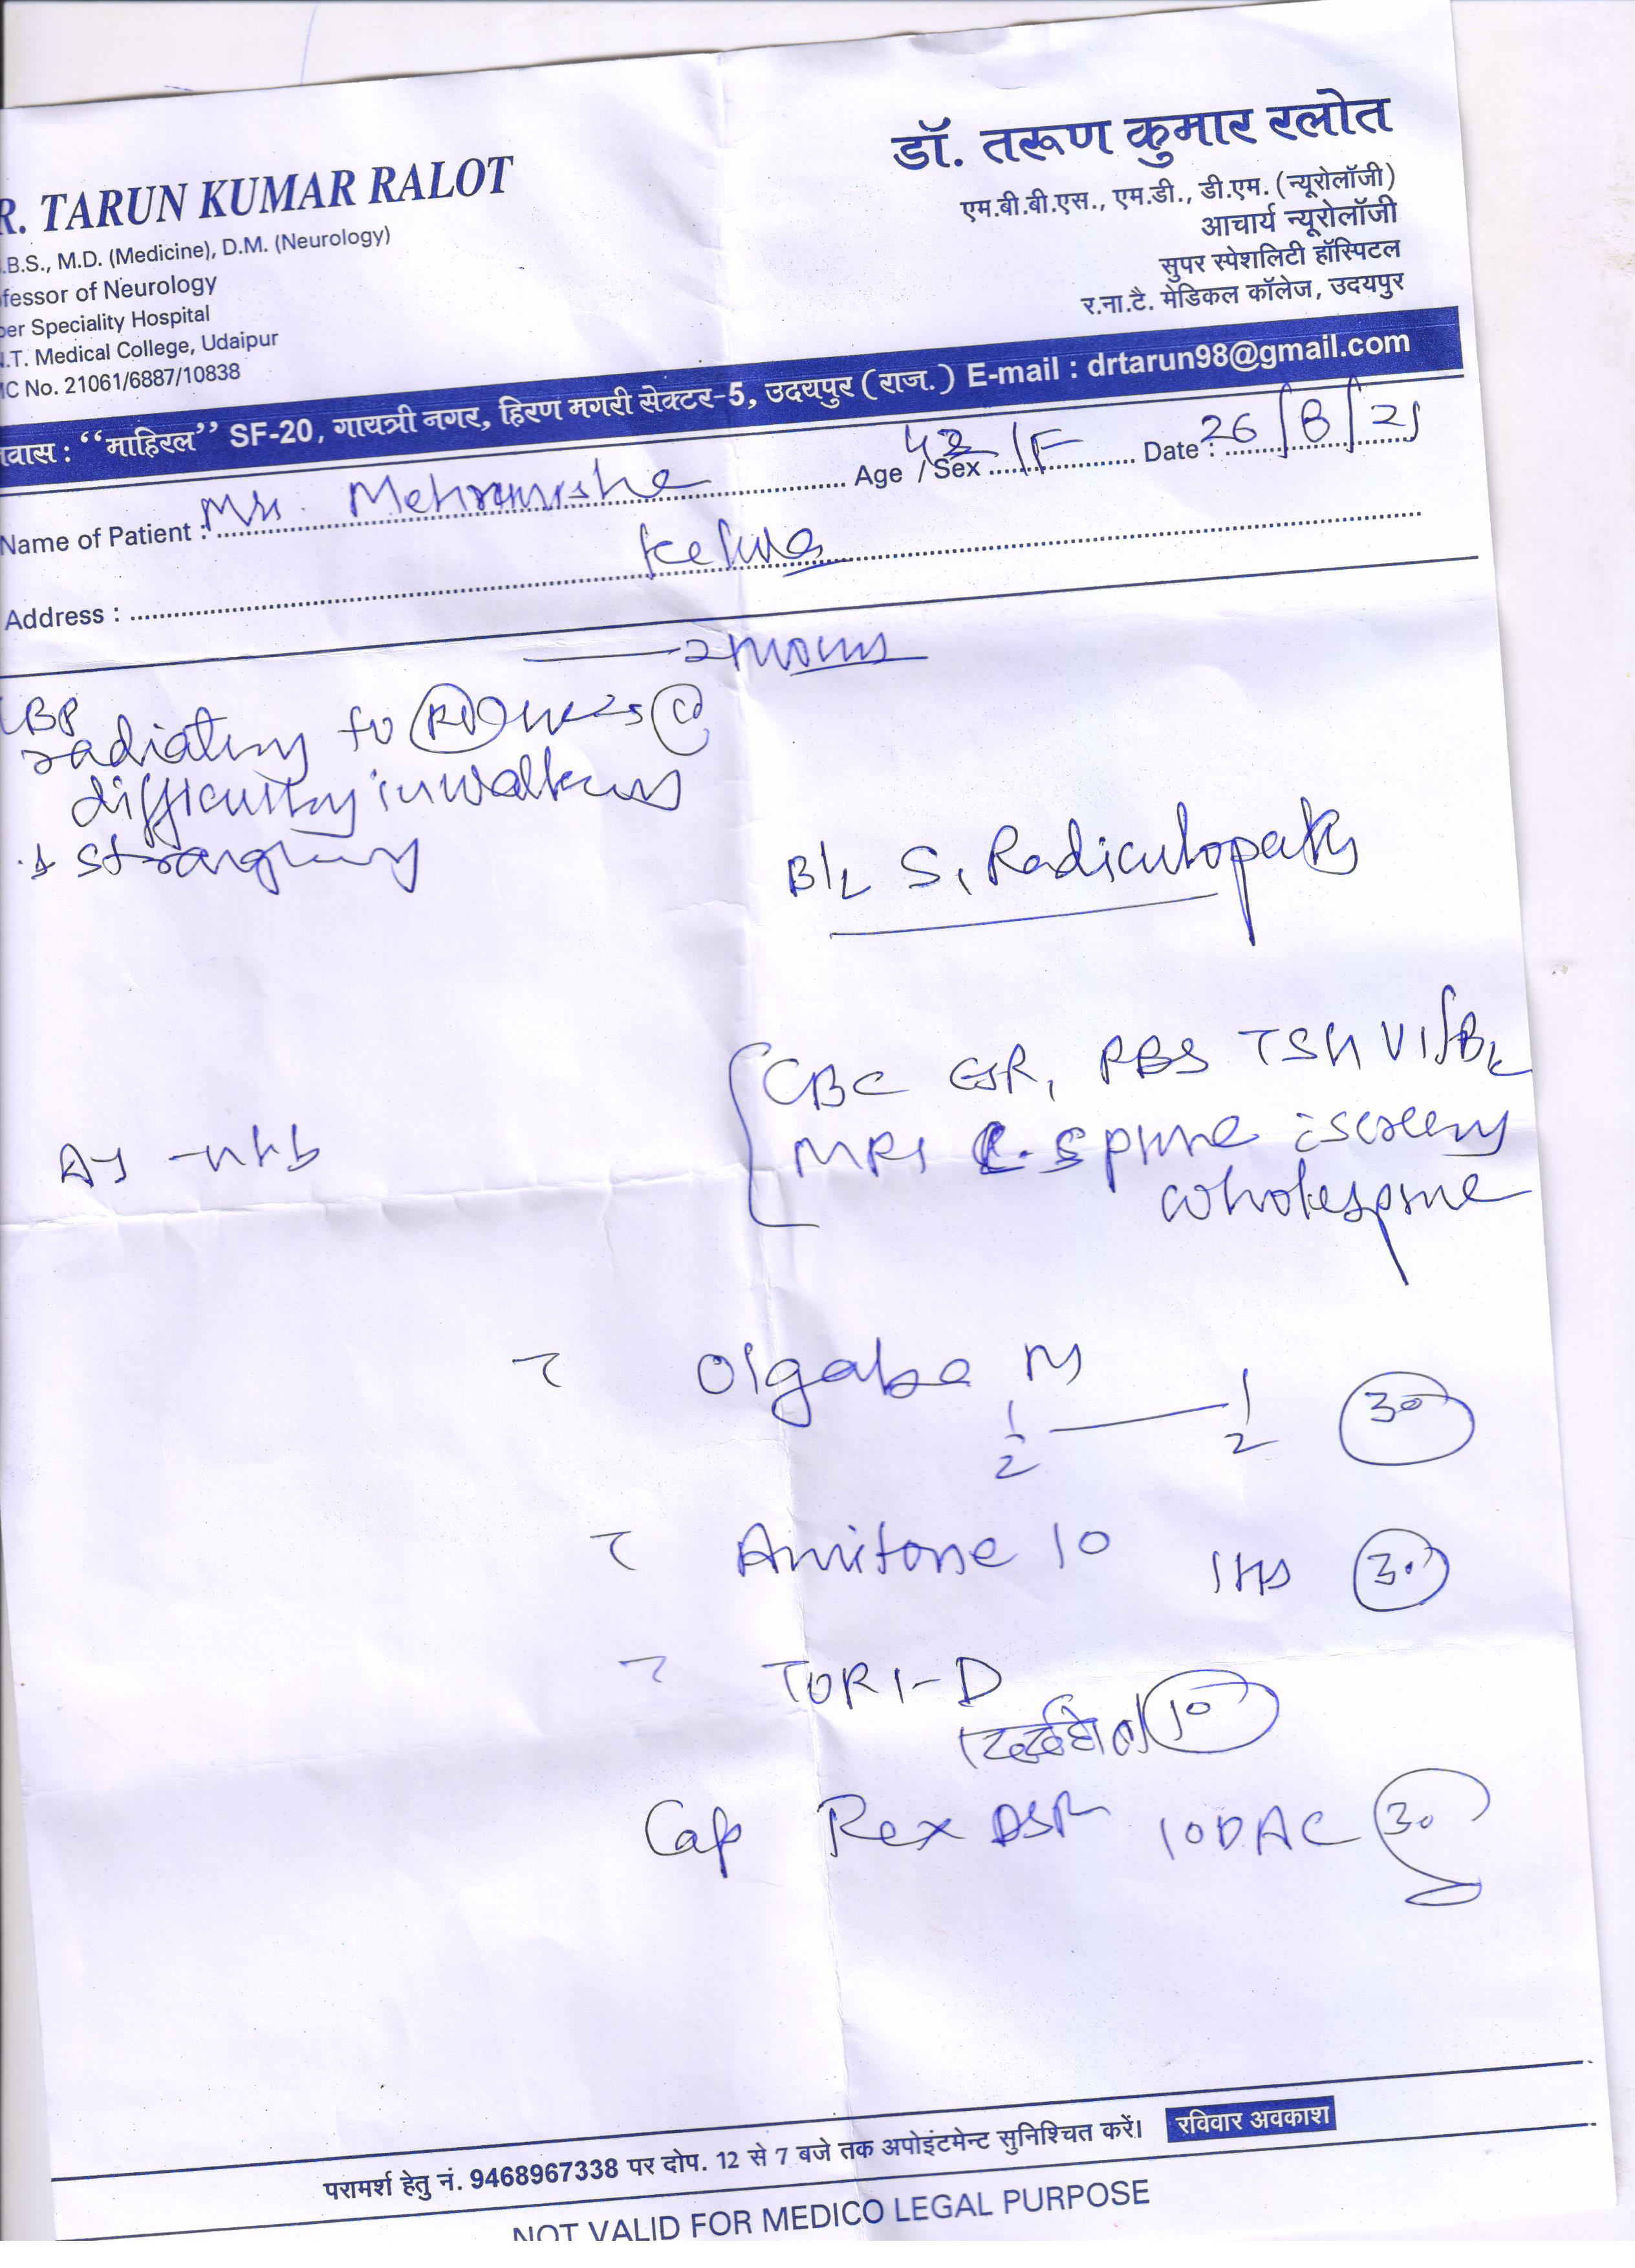 R. TARUN KUMAR RALOT
.B.S., M.D. (Medicine), D.M. (Neurology)
fessor of Neurology
per Speciality Hospital
N.T. Medical College, Udaipur
MC No. 21061/6887/10838
डॉ. तरूण कुमार रलोत
एम.बी.बी.एस., एम.डी., डी.एम. (न्यूरोलॉजी)
आचार्य न्यूरोलॉजी
सुपर स्पेशलिटी हॉस्पिटल
र.ना.टै. मेडिकल कॉलेज, उदयपुर
वास : “माहिरल” SF-20, गायत्री नगर, हिरण मगरी सेक्टर-5, उदयपुर (राज.) E-mail : drtarun98@gmail.com
Name of Patient : Mrs. Age / Sex /F Date : 26/8/21
Address :
LBP
radiating to
difficulty in walking
B/L S1 Radiculopathy
CBC ESR, RBS TSH
MRI spine screening
whole spine
Olgaba
1/2 1/2 30
Amitone 10 1HS 30
TORI-D
10
Cap Rex DSR 1ODAC 30
परामर्श हेतु नं. 9468967338 पर दोप. 12 से 7 बजे तक अपोइंटमेन्ट सुनिश्चित करें। रविवार अवकाश
NOT VALID FOR MEDICO LEGAL PURPOSE